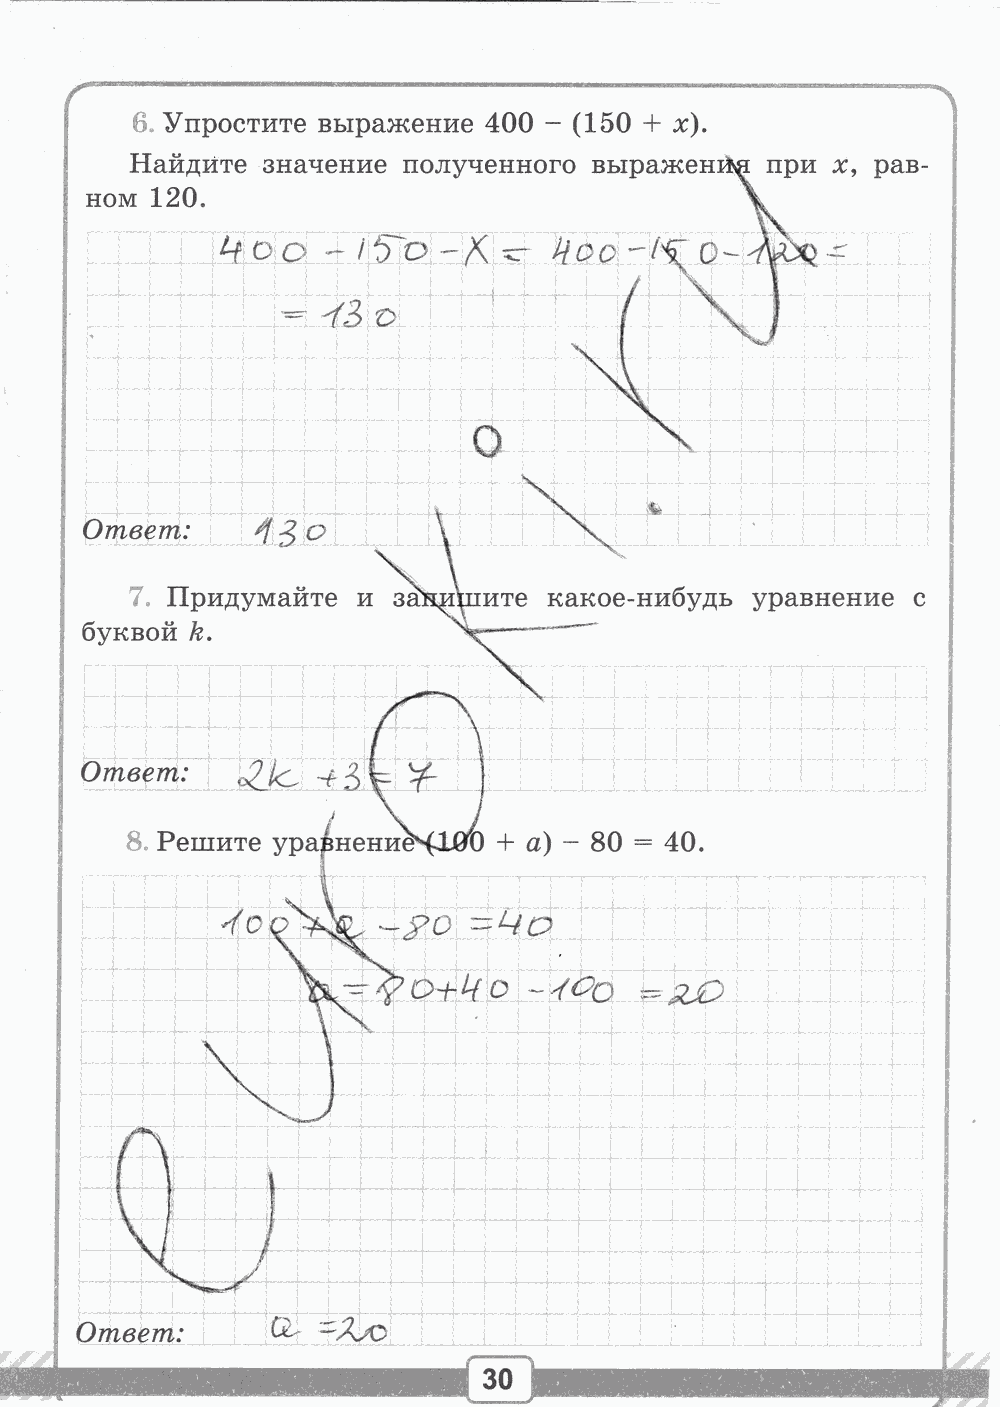 6. Упростите выражение 400 − (150 + x).
Найдите значение полученного выражения при x, рав-
ном 120.
400 − 150 − X = 400 − 150 − 120 =
= 130
Ответ: 130
7. Придумайте и запишите какое-нибудь уравнение с
буквой k.
Ответ: 2k + 3 = 7
8. Решите уравнение (100 + a) − 80 = 40.
100 + a − 80 = 40
a = 80 + 40 − 100 = 20
Ответ: a = 20
30
euroki.ru